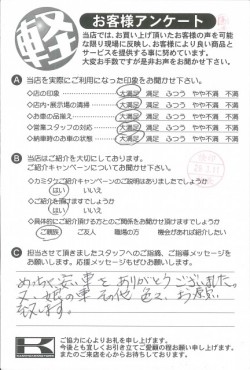 軽
お客様アンケート
当店では、お買い上げ頂いたお客様の声を可能
な限り現場に反映し、お客様により良い商品と
サービスを提供する事に努めています。
大変お手数ですが是非お聞かせ下さい。
A 当店を実際にご利用になった印象をお聞かせ下さい。
◇店の印象 大満足 満足 ふつう やや不満 不満
◇店内・展示場の清掃 大満足 満足 ふつう やや不満 不満
◇お車の品揃え 大満足 満足 ふつう やや不満 不満
◇営業スタッフの対応 大満足 満足 ふつう やや不満 不満
◇納車時のお車の状態 大満足 満足 ふつう やや不満 不満
B 当店はご紹介を大切にしております。
ご紹介キャンペーンについてお聞かせ下さい。
◇カミタウご紹介キャンペーンのご説明はありましたでしょうか
はい いいえ
◇ご紹介を頂けますでしょうか
はい いいえ
◇具体的にご紹介頂ける方とのご関係をお聞かせ頂けますでしょうか
ご親族 ご友人 職場の方 機会があれば紹介したい
C 担当させて頂きましたスタッフへのご指摘、ご指導メッセージを
お願いします。応援メッセージもぜひお願いします。
めっちゃ安い車を ありがとうございました。
又、娘の車 その他 色々、お願い
致します。
K
ご協力に心よりお礼を申し上げます。
今後とも宜しくお引き立てご愛顧の程お願い申し上げます。
またのご来店を心からお待ちしております。